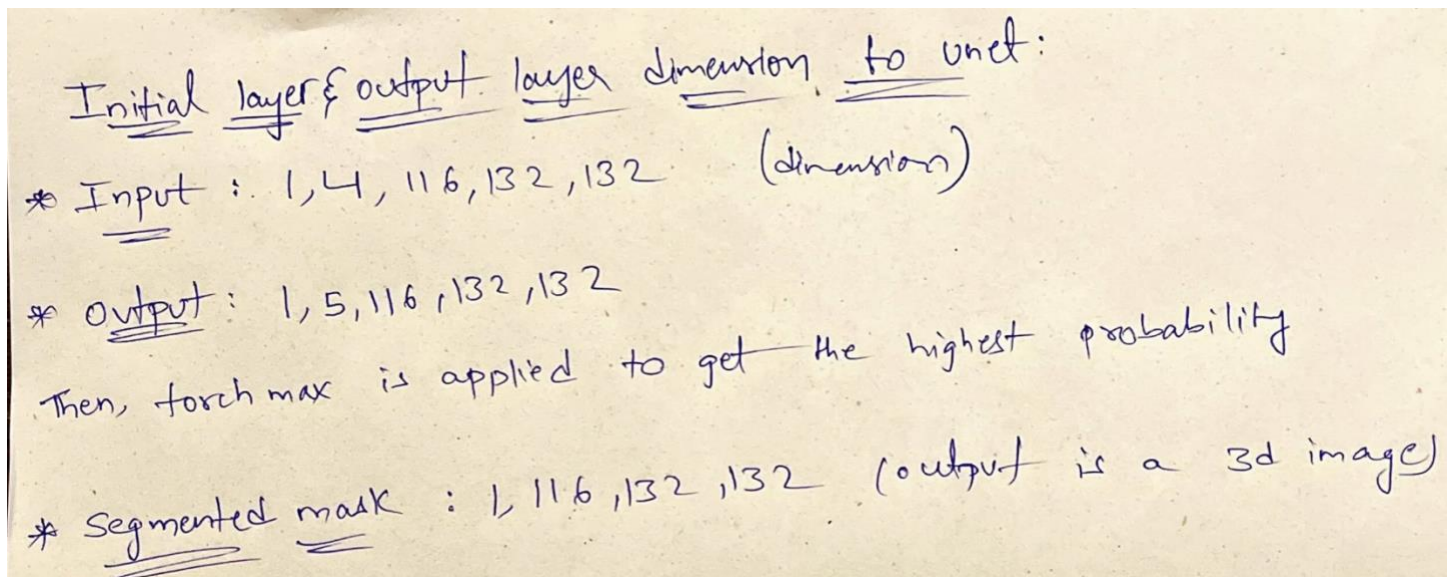 Initial layer & output layer dimension to unet:
* Input : 1,4, 116,132,132 (dimension)
* Output : 1,5,116,132,132
Then, torch max is applied to get the highest probability
* Segmented mask : 1, 116,132,132 (output is a 3d image)